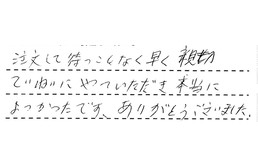 注文して待つことなく早く親切
でいねいにやっていただき本当に
よかったです、ありがとうございました。